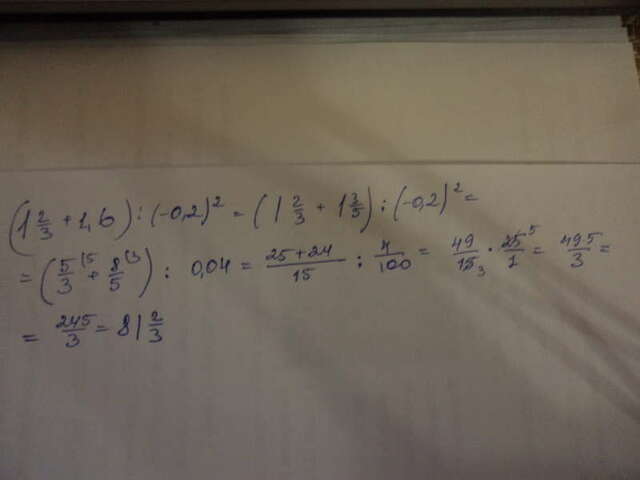 (1 2/3 + 1,6) : (-0,2)² = (1 2/3 + 1 3/5) : (-0,2)² =
= (5/3 (5 + 8/5 (3) : 0,04 = 25+24/15 : 4/100 = 49/15 3 · 25 5/1 = 49·5/3 =
= 245/3 = 81 2/3